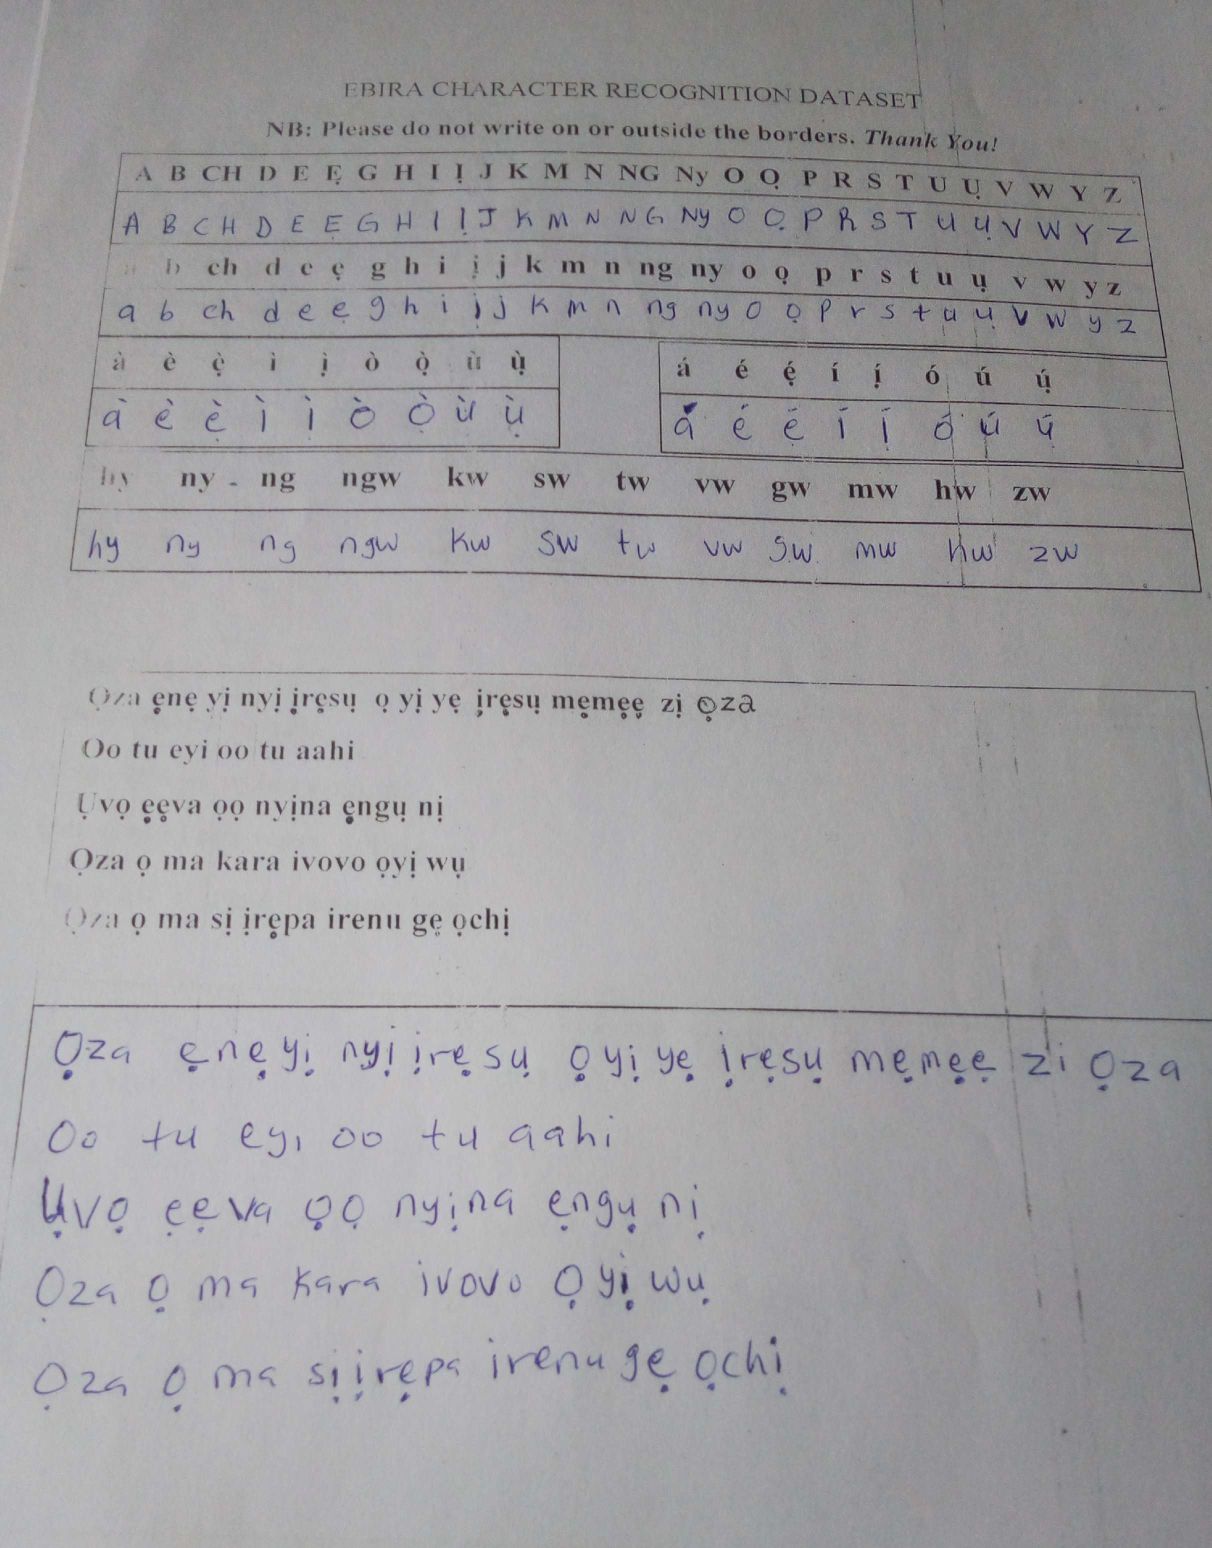 EBIRA CHARACTER RECOGNITION DATASET
NB: Please do not write on or outside the borders. Thank You!
A B CH D E Ẹ G H I Ị J K M N NG Ny O Ọ P R S T U Ụ V W Y Z
A B CH D E Ẹ G H I Ị J K M N NG Ny O Ọ P R S T U Ụ V W Y Z
a b ch d e ẹ g h i ị j k m n ng ny o ọ p r s t u ụ v w y z
a b ch d e ẹ g h i ị j k m n ng ny o ọ p r s t u ụ v w y z
à è ẹ̀ ì ị̀ ò ọ̀ ù ụ̀
á é ẹ́ í ị́ ó ú ụ́
à è ẹ̀ ì ị̀ ò ọ̀ ù ụ̀
á é ẹ́ í ị́ ó ú ụ́
hy ny - ng ngw kw sw tw vw gw mw hw zw
hy ny ng ngw kw sw tw vw gw mw hw zw
Ọza ẹnẹ yị nyị ịrẹsụ ọ yị yẹ ịrẹsụ mẹmẹẹ zị ọza
Oo tu eyi oo tu aahi
Ụvọ ẹẹva ọọ nyịna ẹngụ nị
Ọza ọ ma kara ivovo ọyị wụ
Ọza ọ ma sị ịrẹpa irenu gẹ ọchị
Ọza ẹnẹ yị nyị ịrẹsụ ọ yị yẹ ịrẹsụ mẹmẹẹ zi ọza
Oo tu eyi oo tu aahi
Ụvọ ẹẹva ọọ nyịna ẹngụ nị
Ọza ọ ma kara ivovo ọ yị wụ
Ọza ọ ma sị ịrẹpa irenu gẹ ọchị